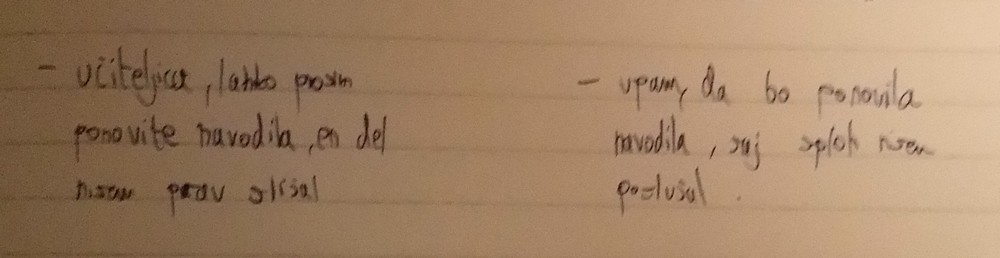 - učiteljica, lahko prosim
ponovite navodila, en del
nisem prav slišal
- upam, da bo ponovila
navodila, saj sploh nisem
poslušal.